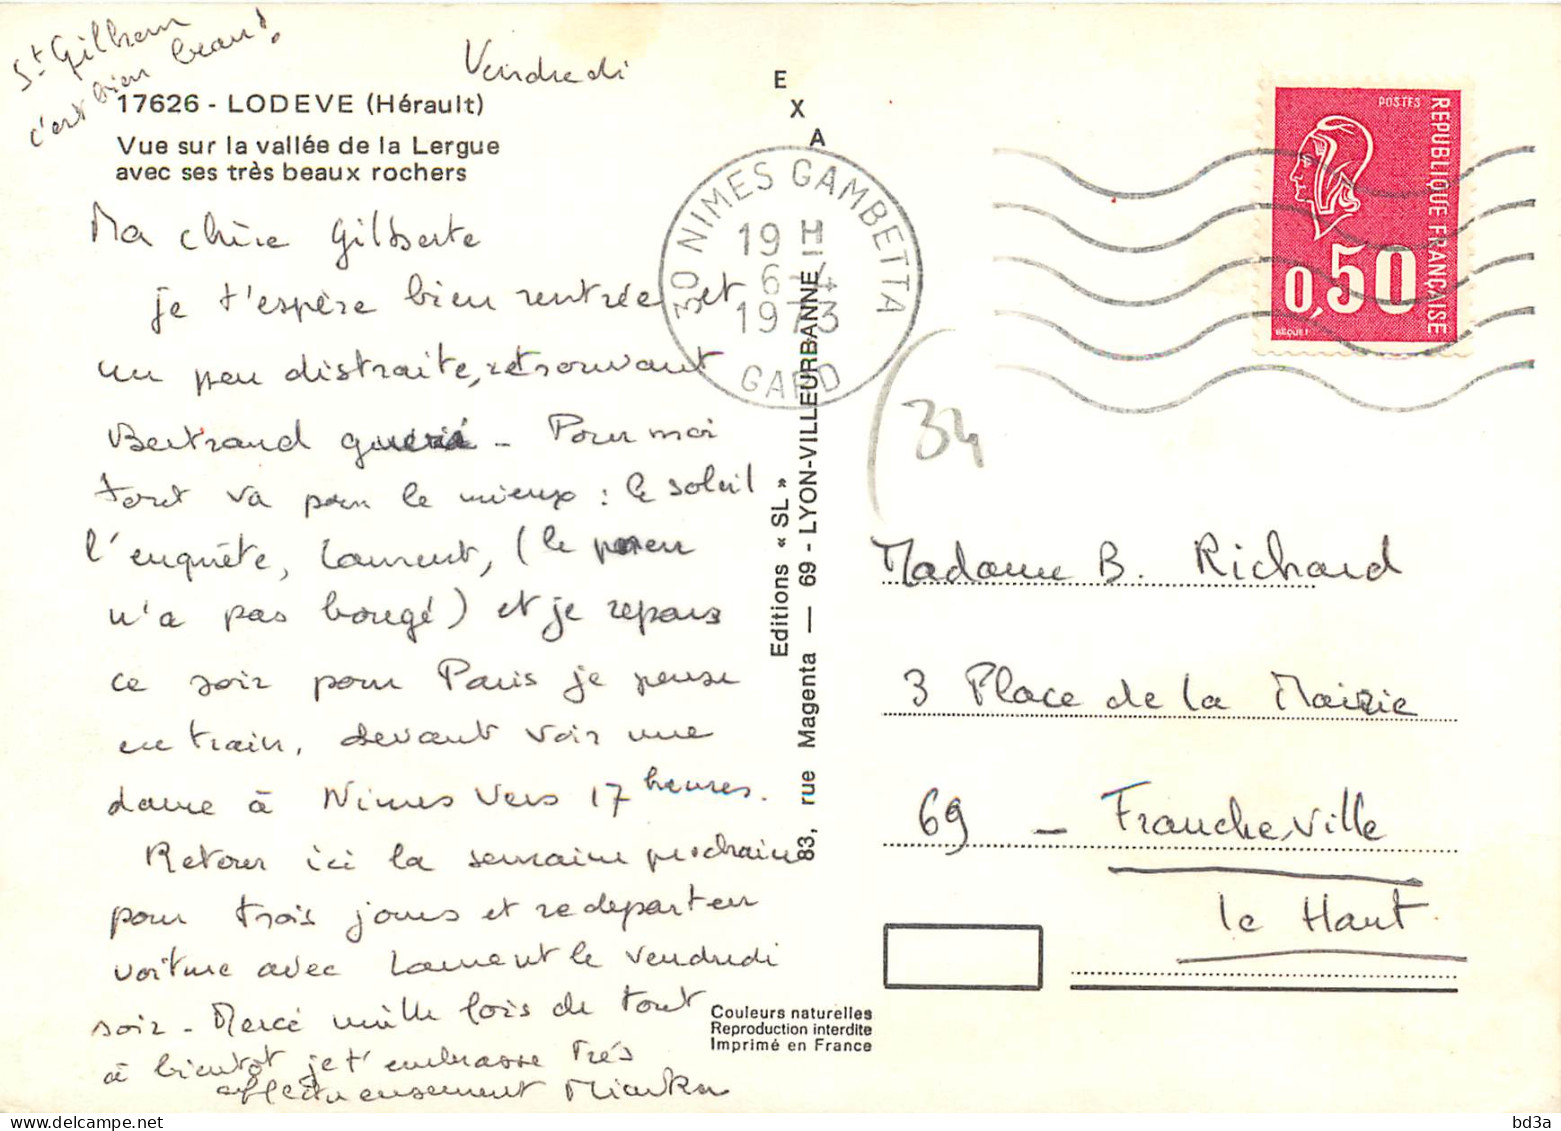 St Gilhem
c'est bien beau !
Vendredi
17626 - LODEVE (Hérault)
Vue sur la vallée de la Lergue
avec ses très beaux rochers
Ma chère Gilberte
je t'espère bien rentrée et
un peu distraite, retrouvant
Bertrand guéri - Pour moi
tout va pour le mieux : le soleil
l'enquête, Laurent, (le pneu
n'a pas bougé) et je repars
ce soir pour Paris je pense
en train, devant voir une
dame à Nimes vers 17 heures.
Retour ici la semaine prochaine
pour trois jours et redepart en
voiture avec Laurent le vendredi
soir - Merci mille fois de tout
à bientôt je t'embrasse très
affectueusement Mianka
EXA
Editions « SL »
83, rue Magenta — 69 - LYON-VILLEURBANNE
Couleurs naturelles
Reproduction interdite
Imprimé en France
30 NIMES GAMBETTA
19 H
6-4
1973
GARD
POSTES
REPUBLIQUE FRANÇAISE
0,50
BEQUET
34
Madame B. Richard
3 Place de la Mairie
69 - Francheville
le Haut
bd3a